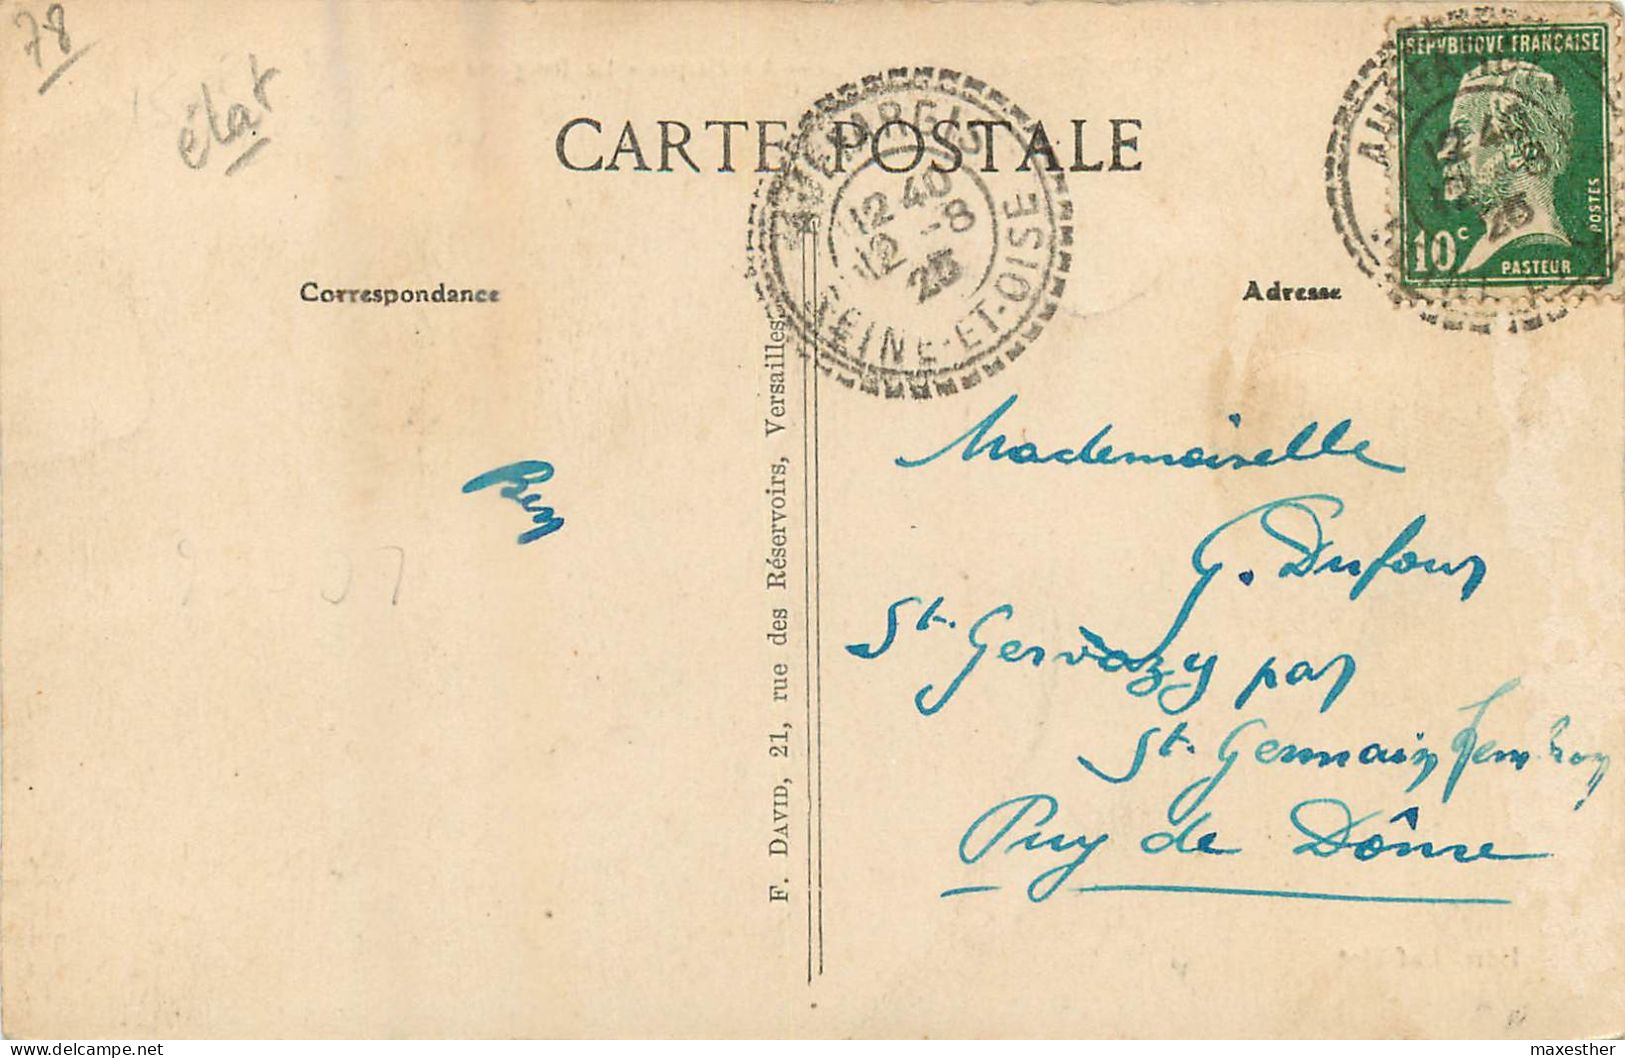 78
état
CARTE POSTALE
REPVBLIQVE FRANÇAISE
10c
PASTEUR
POSTES
AUFFARGIS
12 40
12 -8
25
SEINE-ET-OISE
12 4
12 -8
25
Correspondance
Adresse
F. DAVID, 21, rue des Réservoirs, Versailles
Mademoiselle
G. Dufour
St. Gervazy par
St. Germain Lembron
Puy de Dôme
maxesther